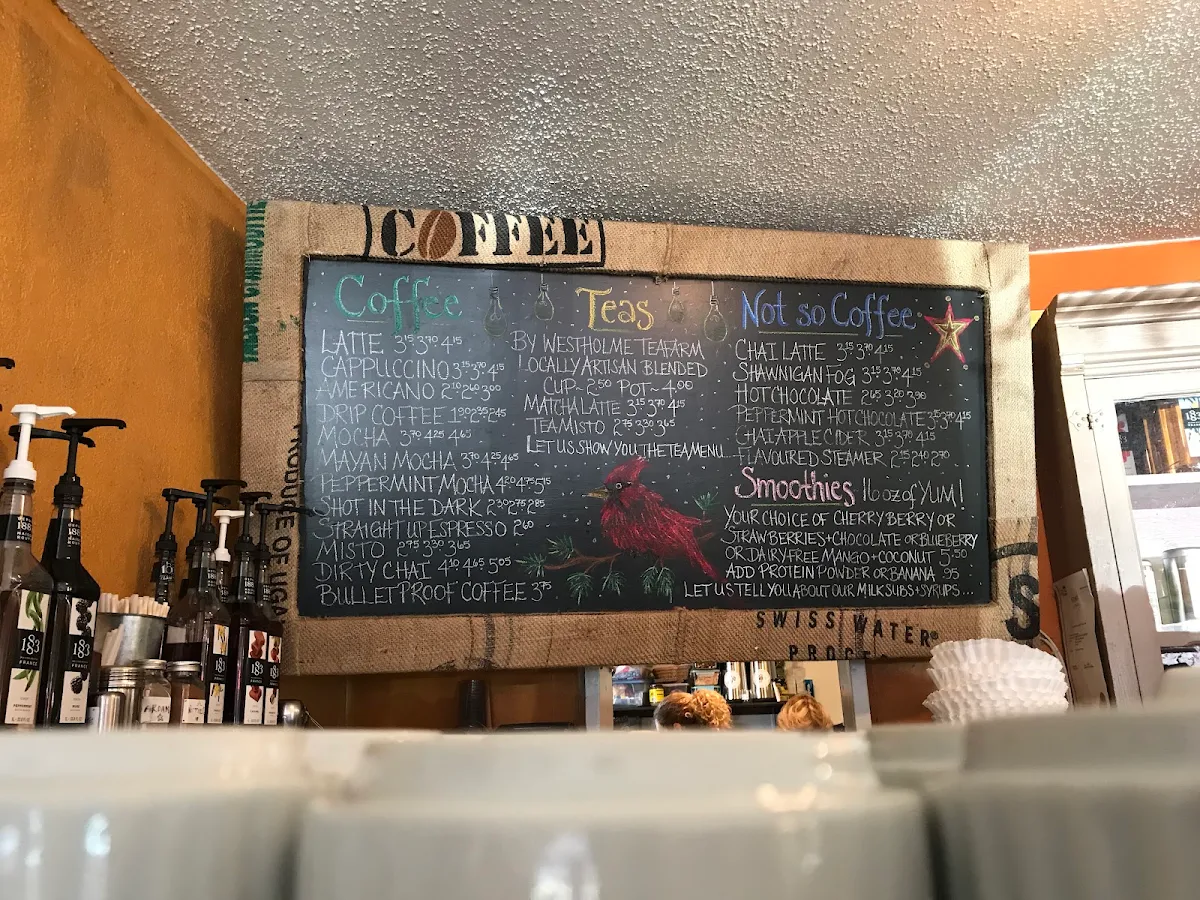 COFFEE
Coffee
LATTE 3.15 3.70 4.15
CAPPUCCINO 3.15 3.70 4.15
AMERICANO 2.10 2.60 3.00
DRIP COFFEE 1.90 2.35 2.45
MOCHA 3.70 4.25 4.65
MAYAN MOCHA 3.70 4.25 4.65
PEPPERMINT MOCHA 4.20 4.75 5.15
SHOT IN THE DARK 2.30 2.75 2.85
STRAIGHT UP ESPRESSO 2.60
MISTO 2.75 3.30 3.65
DIRTY CHAI 4.10 4.65 5.05
BULLETPROOF COFFEE 3.75
Teas
BY WESTHOLME TEAFARM
LOCALLY ARTISAN BLENDED
CUP~2.50 POT~4.00
MATCHA LATTE 3.15 3.70 4.15
TEA MISTO 2.75 3.30 3.65
LET US SHOW YOU THE TEA MENU...
Not so Coffee
CHAI LATTE 3.15 3.70 4.15
SHAWNIGAN FOG 3.15 3.70 4.15
HOT CHOCOLATE 2.65 3.20 3.90
PEPPERMINT HOT CHOCOLATE 3.15 3.70 4.15
CHAI APPLE CIDER 3.15 3.70 4.15
FLAVOURED STEAMER 2.15 2.40 2.70
Smoothies 16 oz of YUM!
YOUR CHOICE OF CHERRY BERRY OR
STRAWBERRIES + CHOCOLATE OR BLUEBERRY
OR DAIRY FREE MANGO + COCONUT 5.50
ADD PROTEIN POWDER OR BANANA .95
LET US TELL YOU ABOUT OUR MILK SUBS + SYRUPS...
SWISS WATER®
PRODUCE OF UGA
183
FRANCE
183
FRANCE
183
183
183